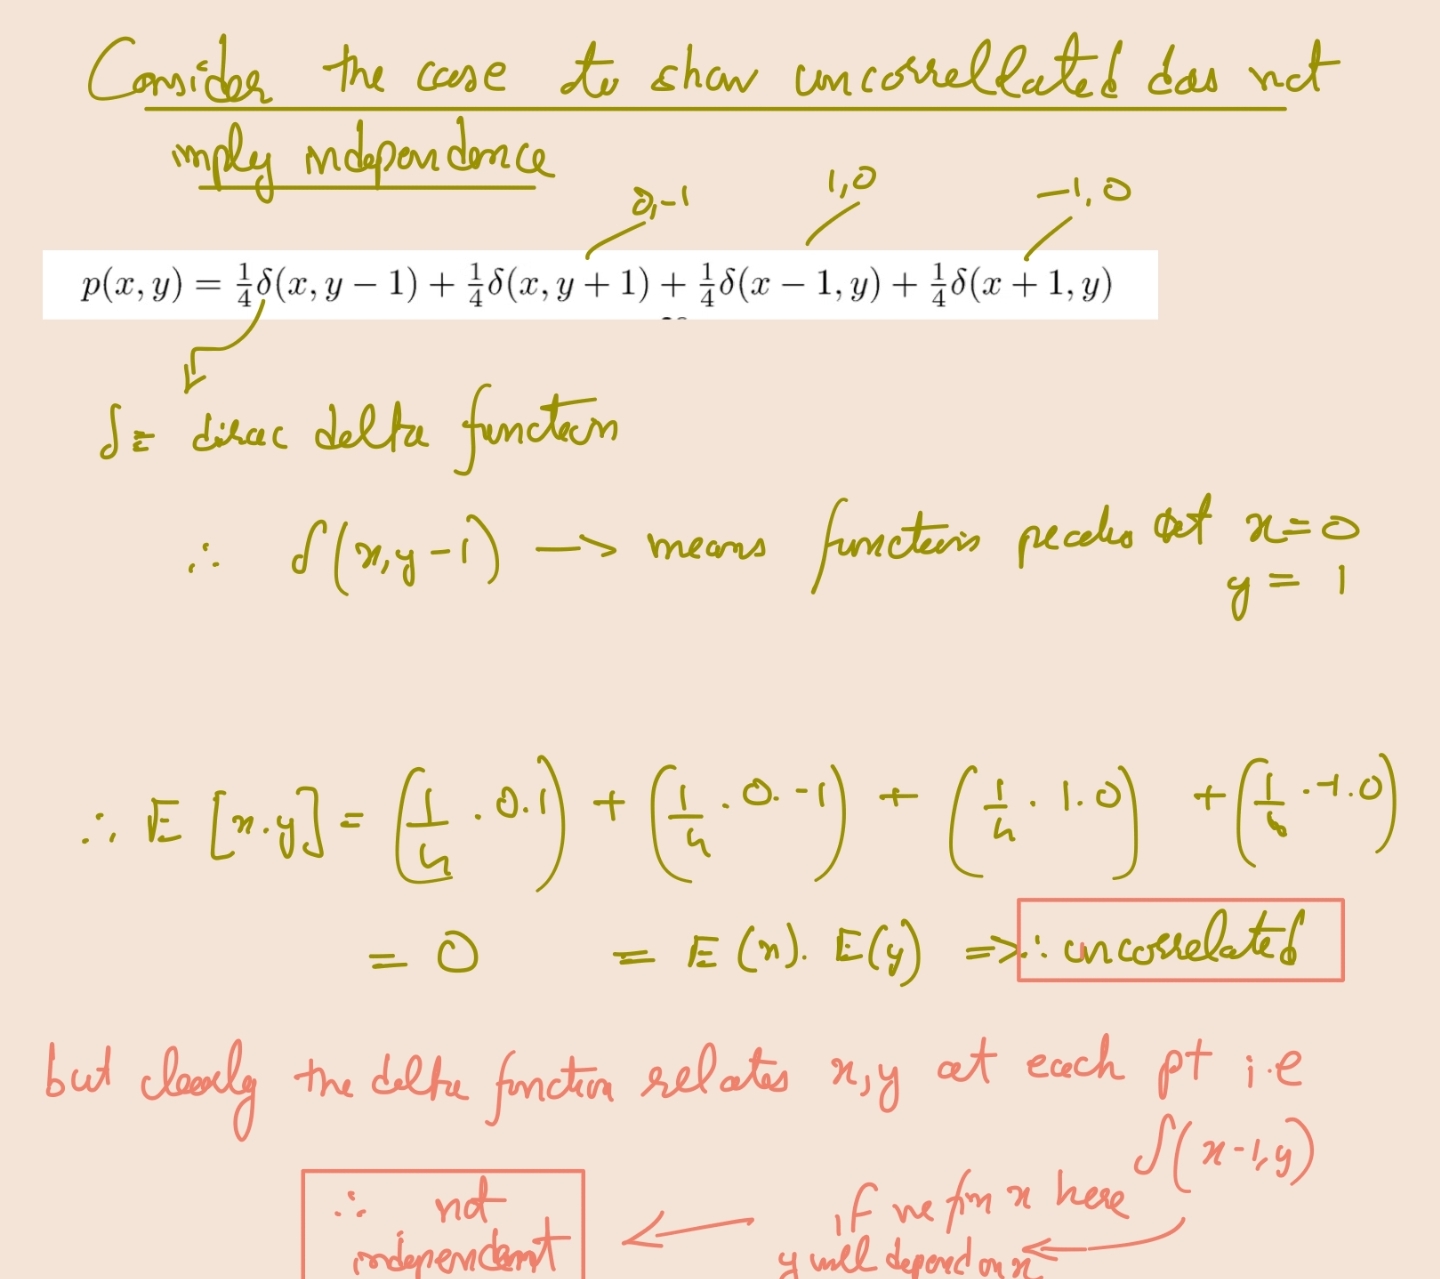 Consider the case to show uncorrellated does not
imply independence
0,-1 1,0 -1,0
p(x, y) = 1/4 δ(x, y − 1) + 1/4 δ(x, y + 1) + 1/4 δ(x − 1, y) + 1/4 δ(x + 1, y)
δ = dirac delta function
∴ δ(x, y-1) → means function peaks at x=0
y = 1
∴ E [x.y] = (1/4 . 0.1) + (1/4 . 0. -1) + (1/4 . 1.0) + (1/4 . -1.0)
= 0 = E(x). E(y) => ∴ uncorrelated
but clearly the delta function relates x,y at each pt i.e
δ(x-1,y)
if we fix x here
y will depend on x
∴ not
independent